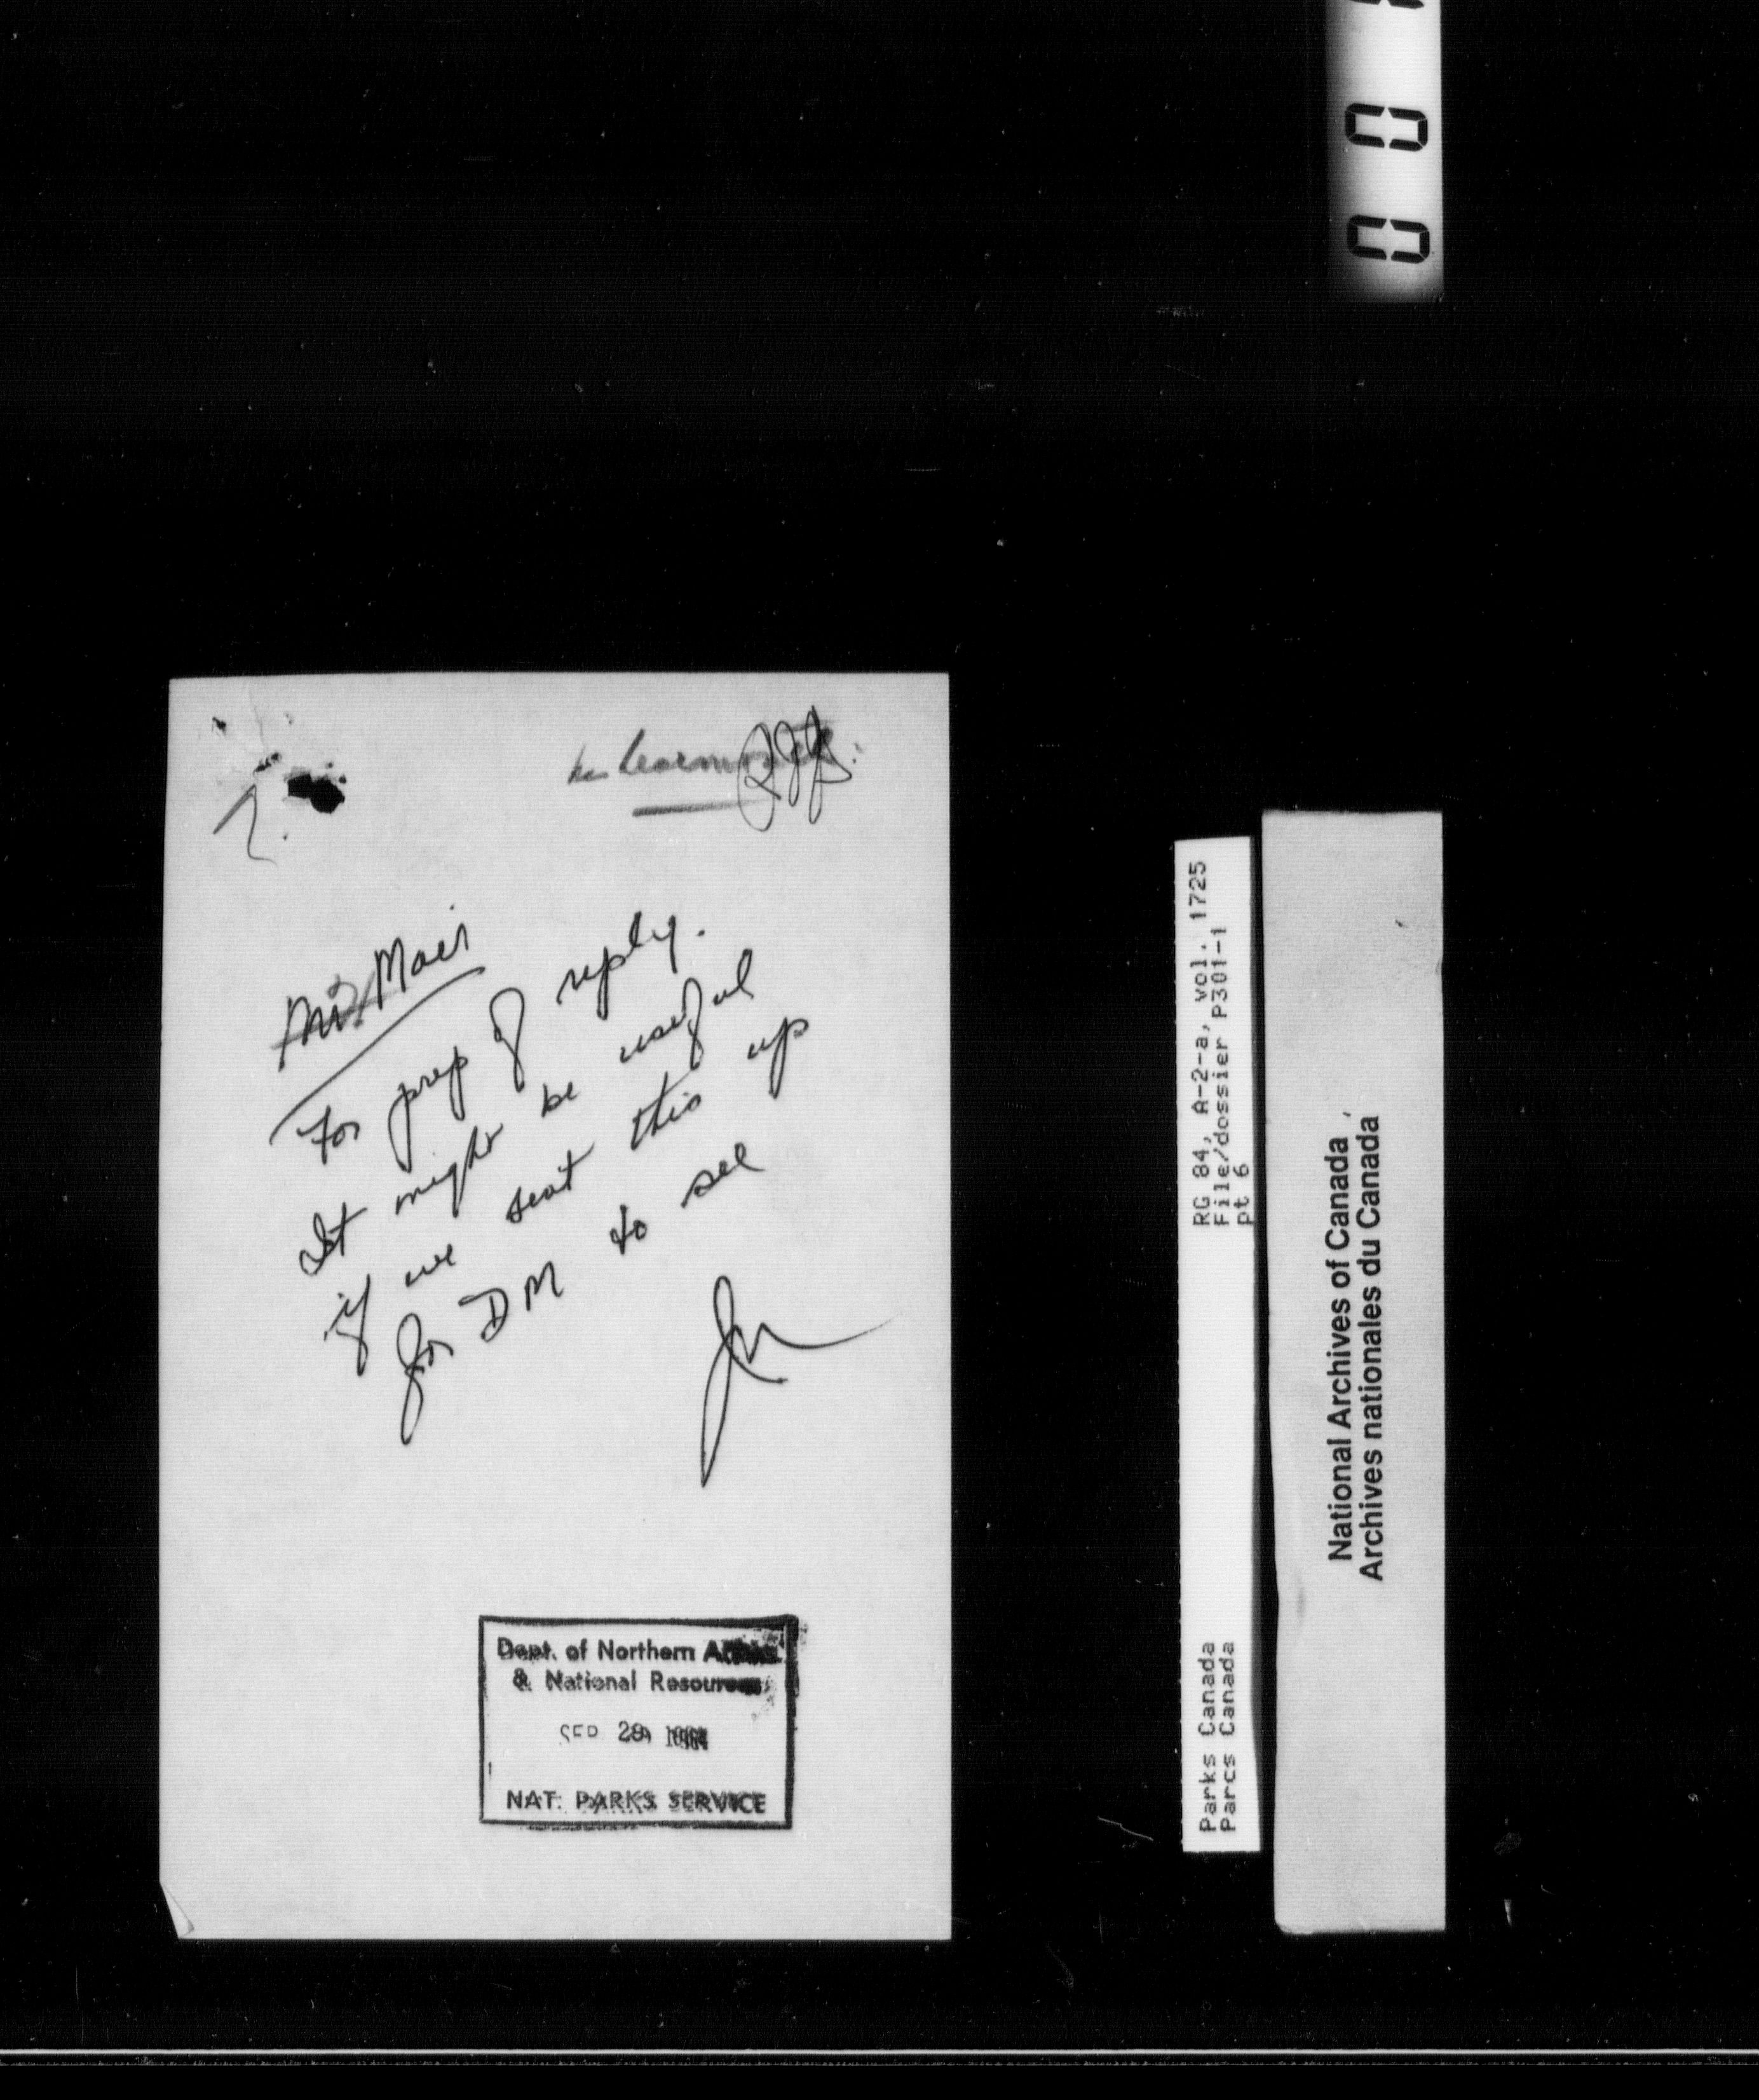 Mr. Mair
For prep of reply.
It might be useful
if we sent this up
for DM to see
Dept. of Northern Affairs
& National Resources
SEP 29
NAT. PARKS SERVICE
RG 84, A-2-a, vol. 1725
File/dossier P301-1
pt 6
Parks Canada
Parcs Canada
National Archives of Canada
Archives nationales du Canada
0 0